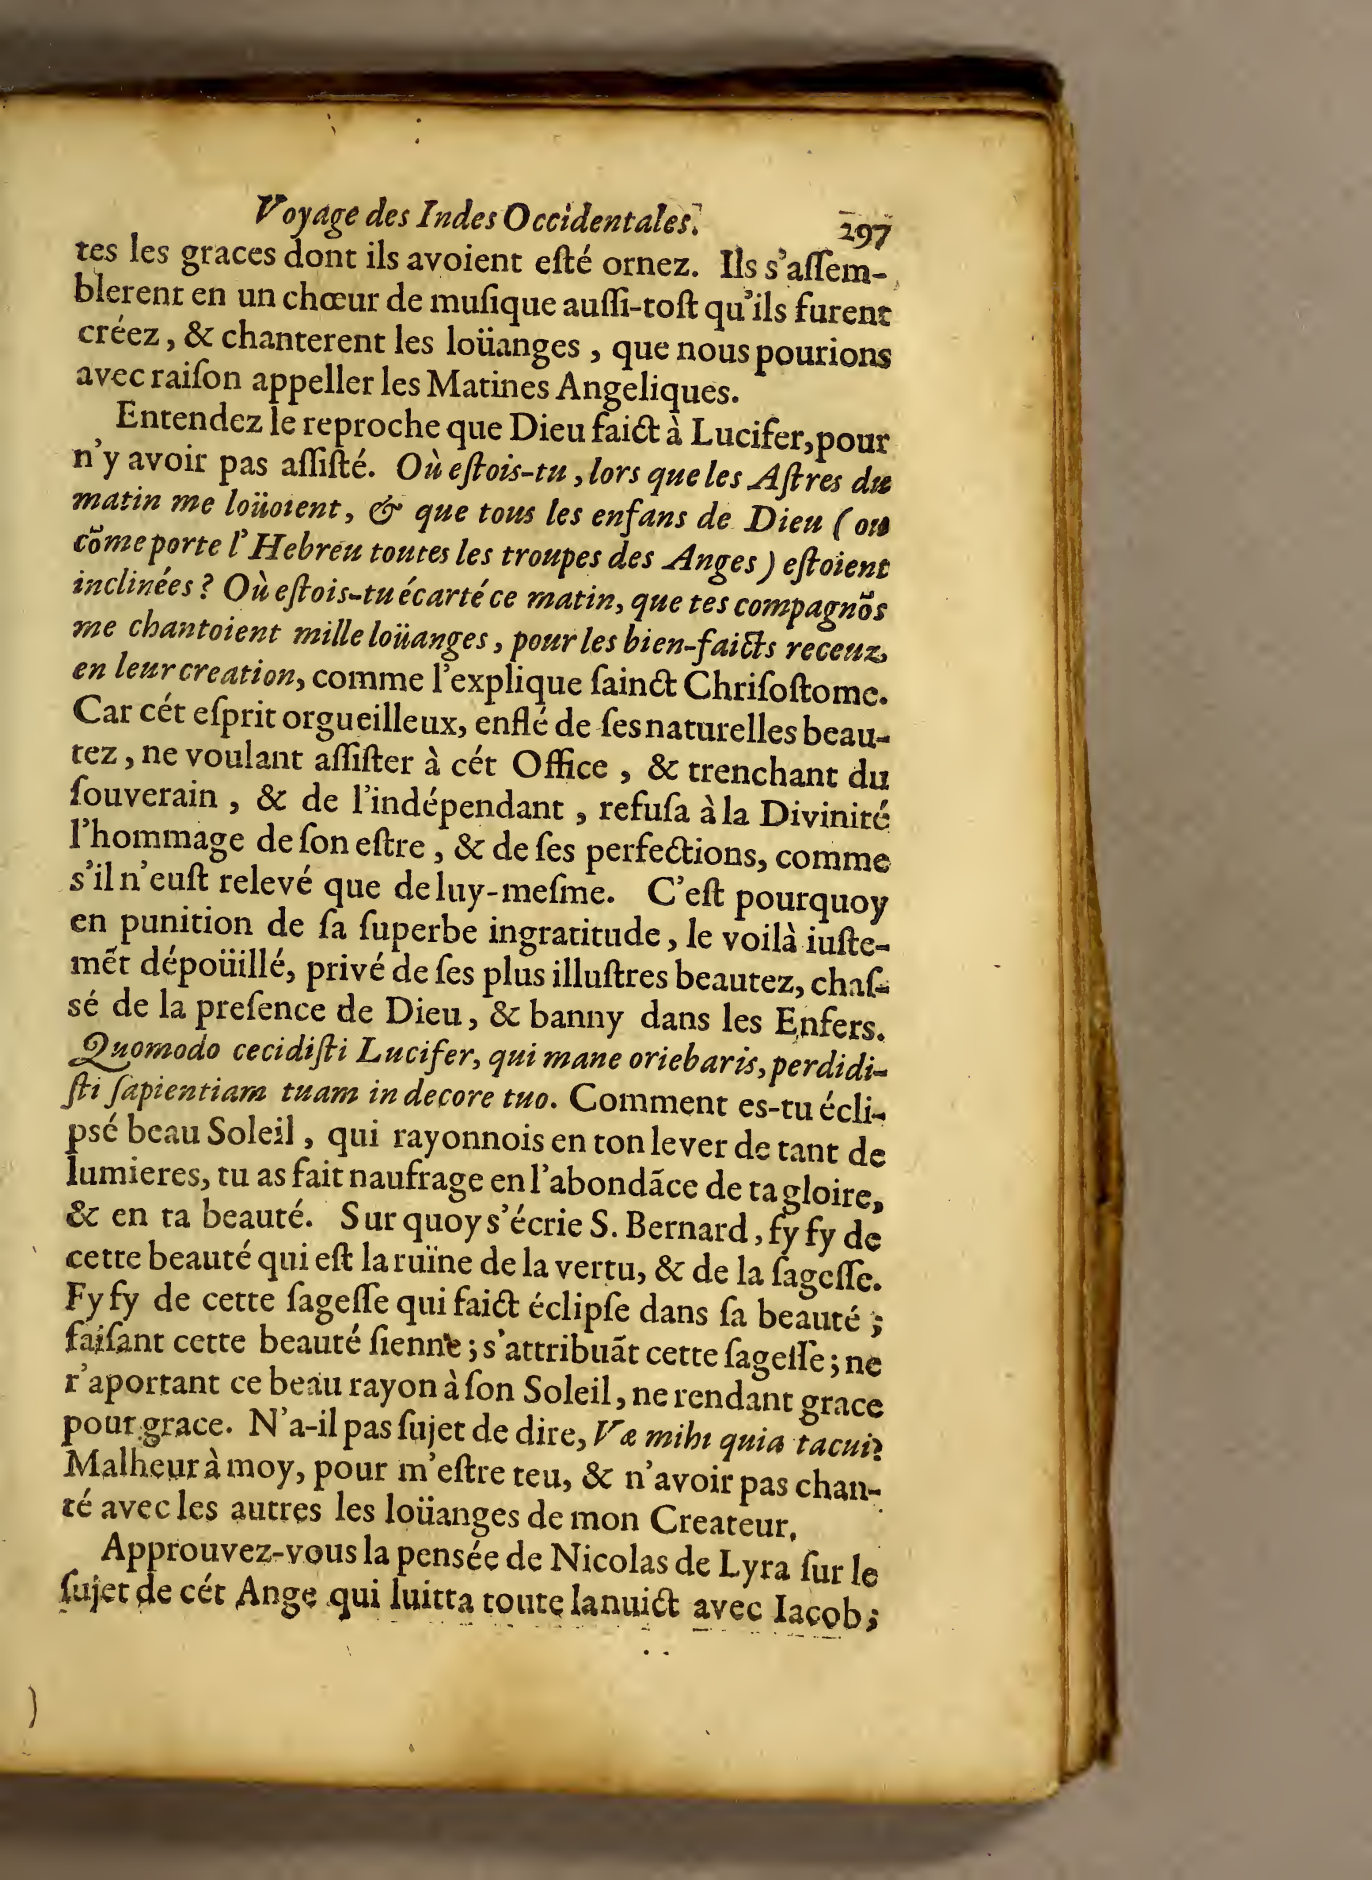 Voyage des Indes Occidentales. 297
tes les graces dont ils avoient eſté ornez. Ils s'aſſem-
blerent en un chœur de muſique auſſi-toſt qu'ils furent
créez, & chanterent les loüanges, que nous pourions
avec raiſon appeller les Matines Angeliques.
Entendez le reproche que Dieu faict à Lucifer, pour
n'y avoir pas aſſiſté. Où eſtois-tu, lors que les Aſtres du
matin me loüoient, & que tous les enfans de Dieu (ou
cõme porte l'Hebreu toutes les troupes des Anges) eſtoient
inclinées? Où eſtois-tu écarté ce matin, que tes compagnõs
me chantoient mille loüanges, pour les bien-faicts receuz,
en leur creation, comme l'explique ſainct Chriſoſtome.
Car cét eſprit orgueilleux, enflé de ſes naturelles beau-
tez, ne voulant aſſiſter à cét Office, & trenchant du
ſouverain, & de l'indépendant, refuſa à la Divinité
l'hommage de ſon eſtre, & de ſes perfections, comme
s'il n'euſt relevé que de luy-meſme. C'eſt pourquoy
en punition de ſa ſuperbe ingratitude, le voilà iuſte-
mẽt dépoüillé, privé de ſes plus illuſtres beautez, chaſ-
sé de la preſence de Dieu, & banny dans les Enfers.
Quomodo cecidiſti Lucifer, qui mane oriebaris, perdidi-
ſti ſapientiam tuam in decore tuo. Comment es-tu écli-
psé beau Soleil, qui rayonnois en ton lever de tant de
lumieres, tu as fait naufrage en l'abondãce de ta gloire,
& en ta beauté. Sur quoy s'écrie S. Bernard, fy fy de
cette beauté qui eſt la ruïne de la vertu, & de la ſageſſe.
Fy fy de cette ſageſſe qui faict éclipſe dans ſa beauté;
faiſant cette beauté ſienne; s'attribuãt cette ſageſſe; ne
r'aportant ce beau rayon à ſon Soleil, ne rendant grace
pour grace. N'a-il pas ſujet de dire, Væ mihi quia tacui?
Malheur à moy, pour m'eſtre teu, & n'avoir pas chan-
té avec les autres les loüanges de mon Createur.
Approuvez-vous la pensée de Nicolas de Lyra ſur le
ſujet de cét Ange qui luitta toute la nuict avec Iacob;